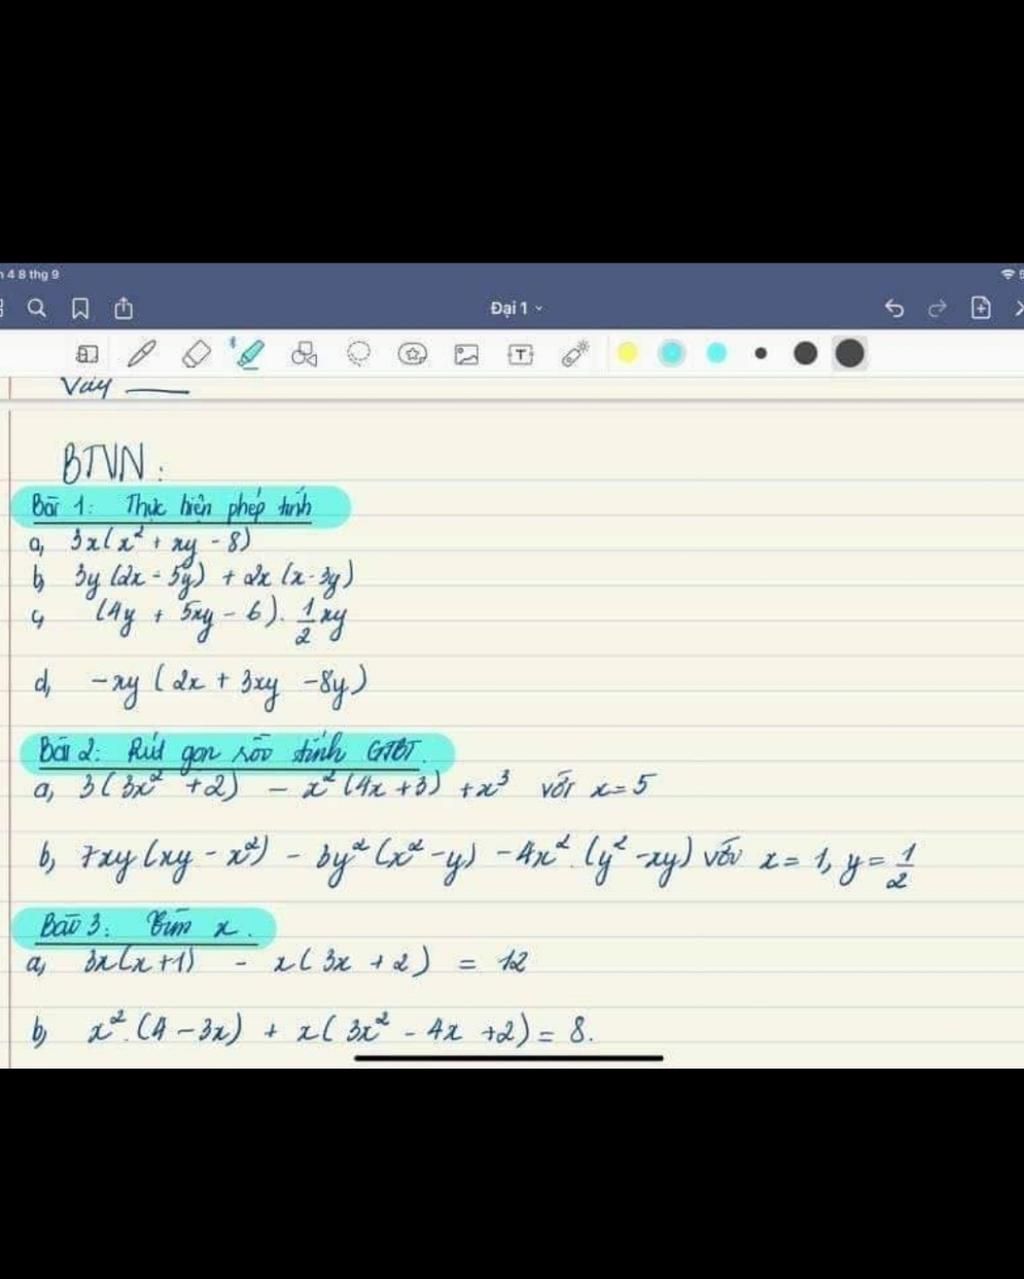 4 8 thg 9
Đại 1
Vậy
BTVN:
Bài 1: Thực hiện phép tính
a, 3x(x² + xy - 8)
b, 3y(2x - 5y) + 2x(x - 3y)
c, (4y + 5xy - 6). 1/2 xy
d, -xy(2x + 3xy - 8y)
Bài 2: Rút gọn rồi tính GTBT.
a, 3(3x² + 2) - x²(4x + 3) + x³ với x = 5
b, 7xy(xy - x²) - 3y²(x² - y) - 4x².(y² - xy) với x = 1, y = 1/2
Bài 3: Tìm x.
a, 3x(x + 1) - x(3x + 2) = 12
b, x².(4 - 3x) + x(3x² - 4x + 2) = 8.